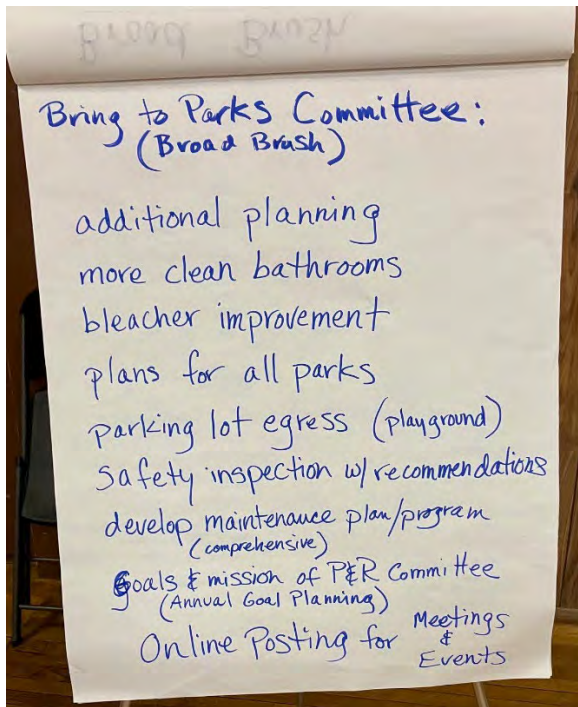 Broad Brush
Bring to Parks Committee:
(Broad Brush)
additional planning
more clean bathrooms
bleacher improvement
plans for all parks
parking lot egress (playground)
safety inspection w/ recommendations
develop maintenance plan/program
(comprehensive)
goals & mission of P&R Committee
(Annual Goal Planning)
Online Posting for Meetings
&
Events